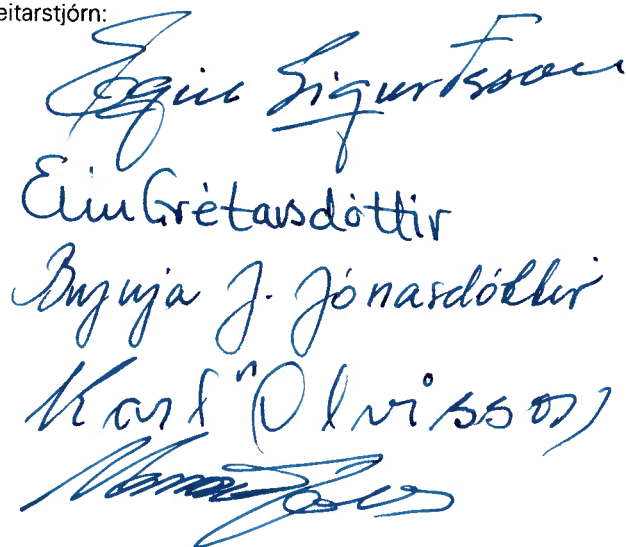 eitarstjórn:
Egill Sigurðsson
Elín Grétarsdóttir
Brynja J. Jónasdóttir
Karl Ölvisson